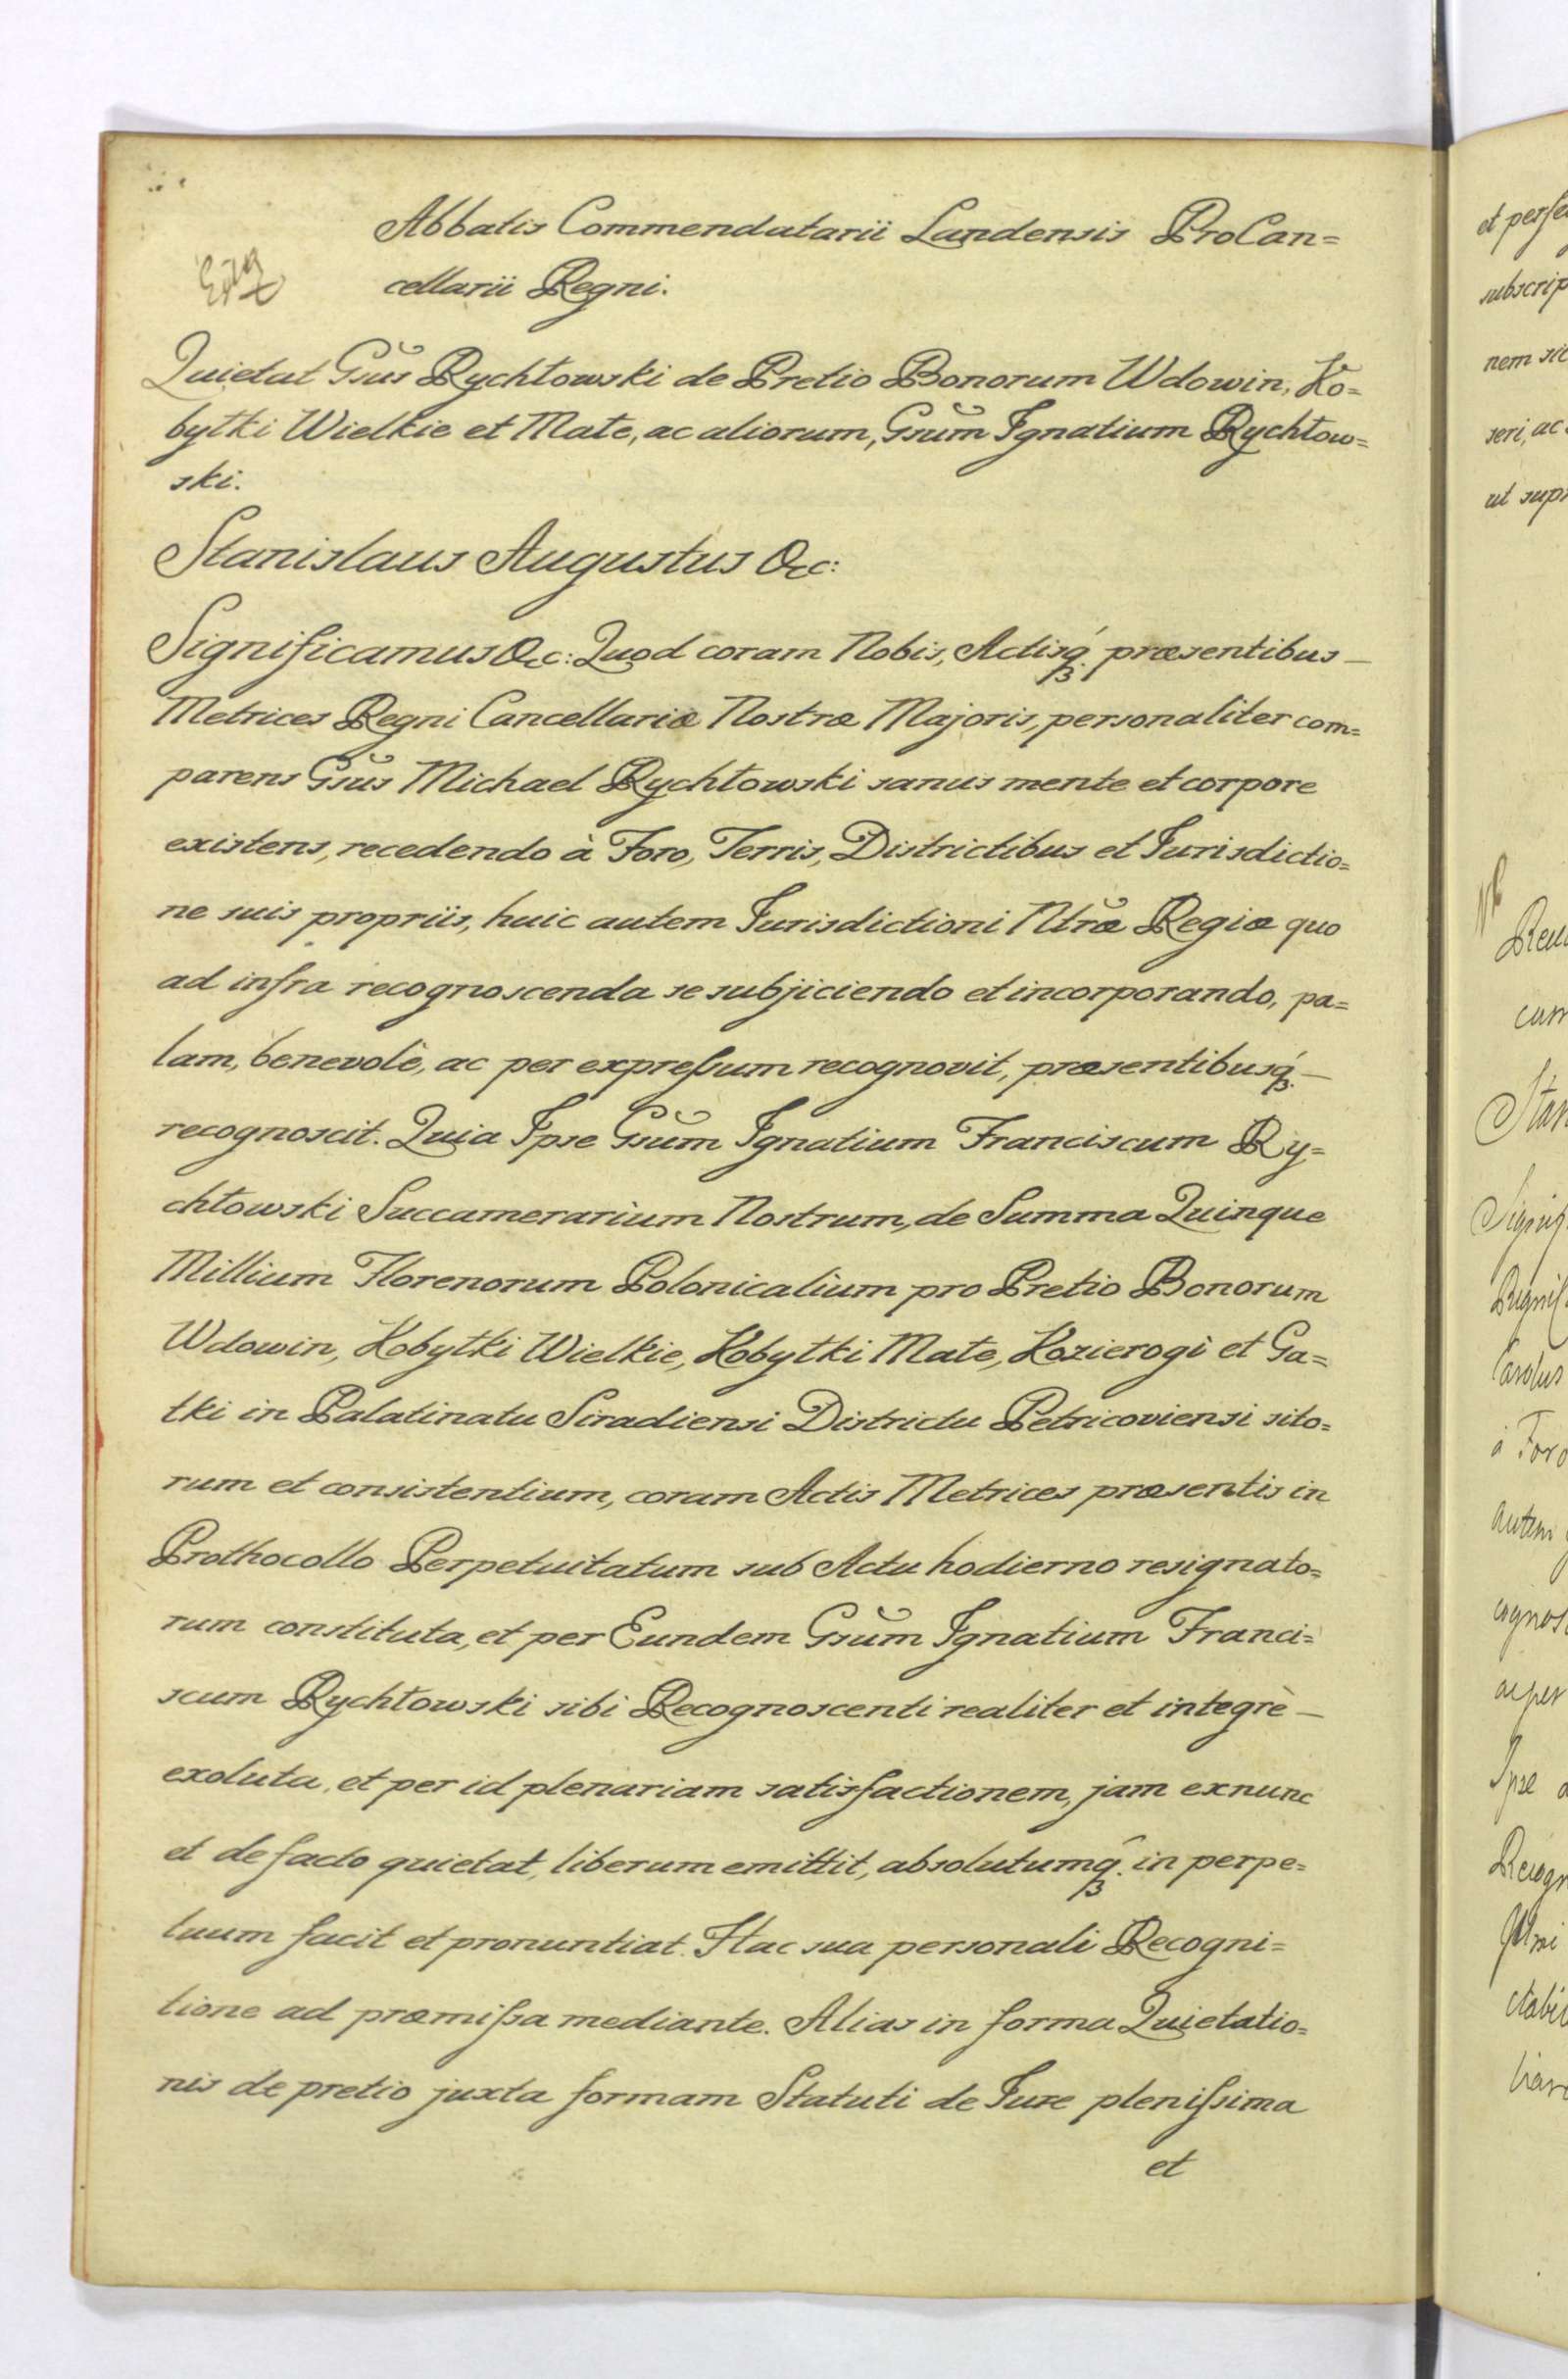 Abbatis Commendatarii Landensis ProCan=
cellarii Regni.
Quietat Gsũs Rychłowski de Pretio Bonorum Wdowin, Ko=
byłki Wielkie et Małe, ac aliorum, Gsũm Ignatium Rychłow=
ski.
Stanislaus Augustus &c:
Significamus &c: Quod coram Nobis, Actisq́ꝫ. præsentibus —
Metrices Regni Cancellariæ Nostræ Majoris, personaliter com=
parens Gsũs Michael Rychłowski sanus mente et corpore
existens, recedendo à Foro, Terris, Districtibus et Jurisdictio=
ne suis propriis, huic autem Jurisdictioni Ntræ̃ Regiæ quo
ad infra recognoscenda se subjiciendo et incorporando, pa=
lam, benevolè, ac per expreſsum recognovit, præsentibusq́ꝫ. —
recognoscit. Quia Ipse Gsũm Ignatium Franciscum Ry=
chłowski Succamerarium Nostrum, de Summa Quinque
Millium Florenorum Polonicalium pro Pretio Bonorum
Wdowin, Kobyłki Wielkie, Kobyłki Małe, Kozierogi et Ga=
łki in Palatinatu Siradiensi Districtu Petricoviensi sito=
rum et consistentium, coram Actis Metrices præsentis in
Prothocollo Perpetuitatum sub Actu hodierno resignato=
rum constituta, et per Eundem Gsũm Ignatium Franci=
scum Rychłowski sibi Recognoscenti realiter et integrè —
exoluta, et per id plenariam satisfactionem, jam exnunc
et de facto quietat, liberum emittit, absolutumq́ꝫ. in perpe=
tuum facit et pronuntiat. Hac sua personali Recogni=
tione ad præmiſsa mediante. Alias in forma Quietatio=
nis de pretio juxta formam Statuti de Jure pleniſsima
et